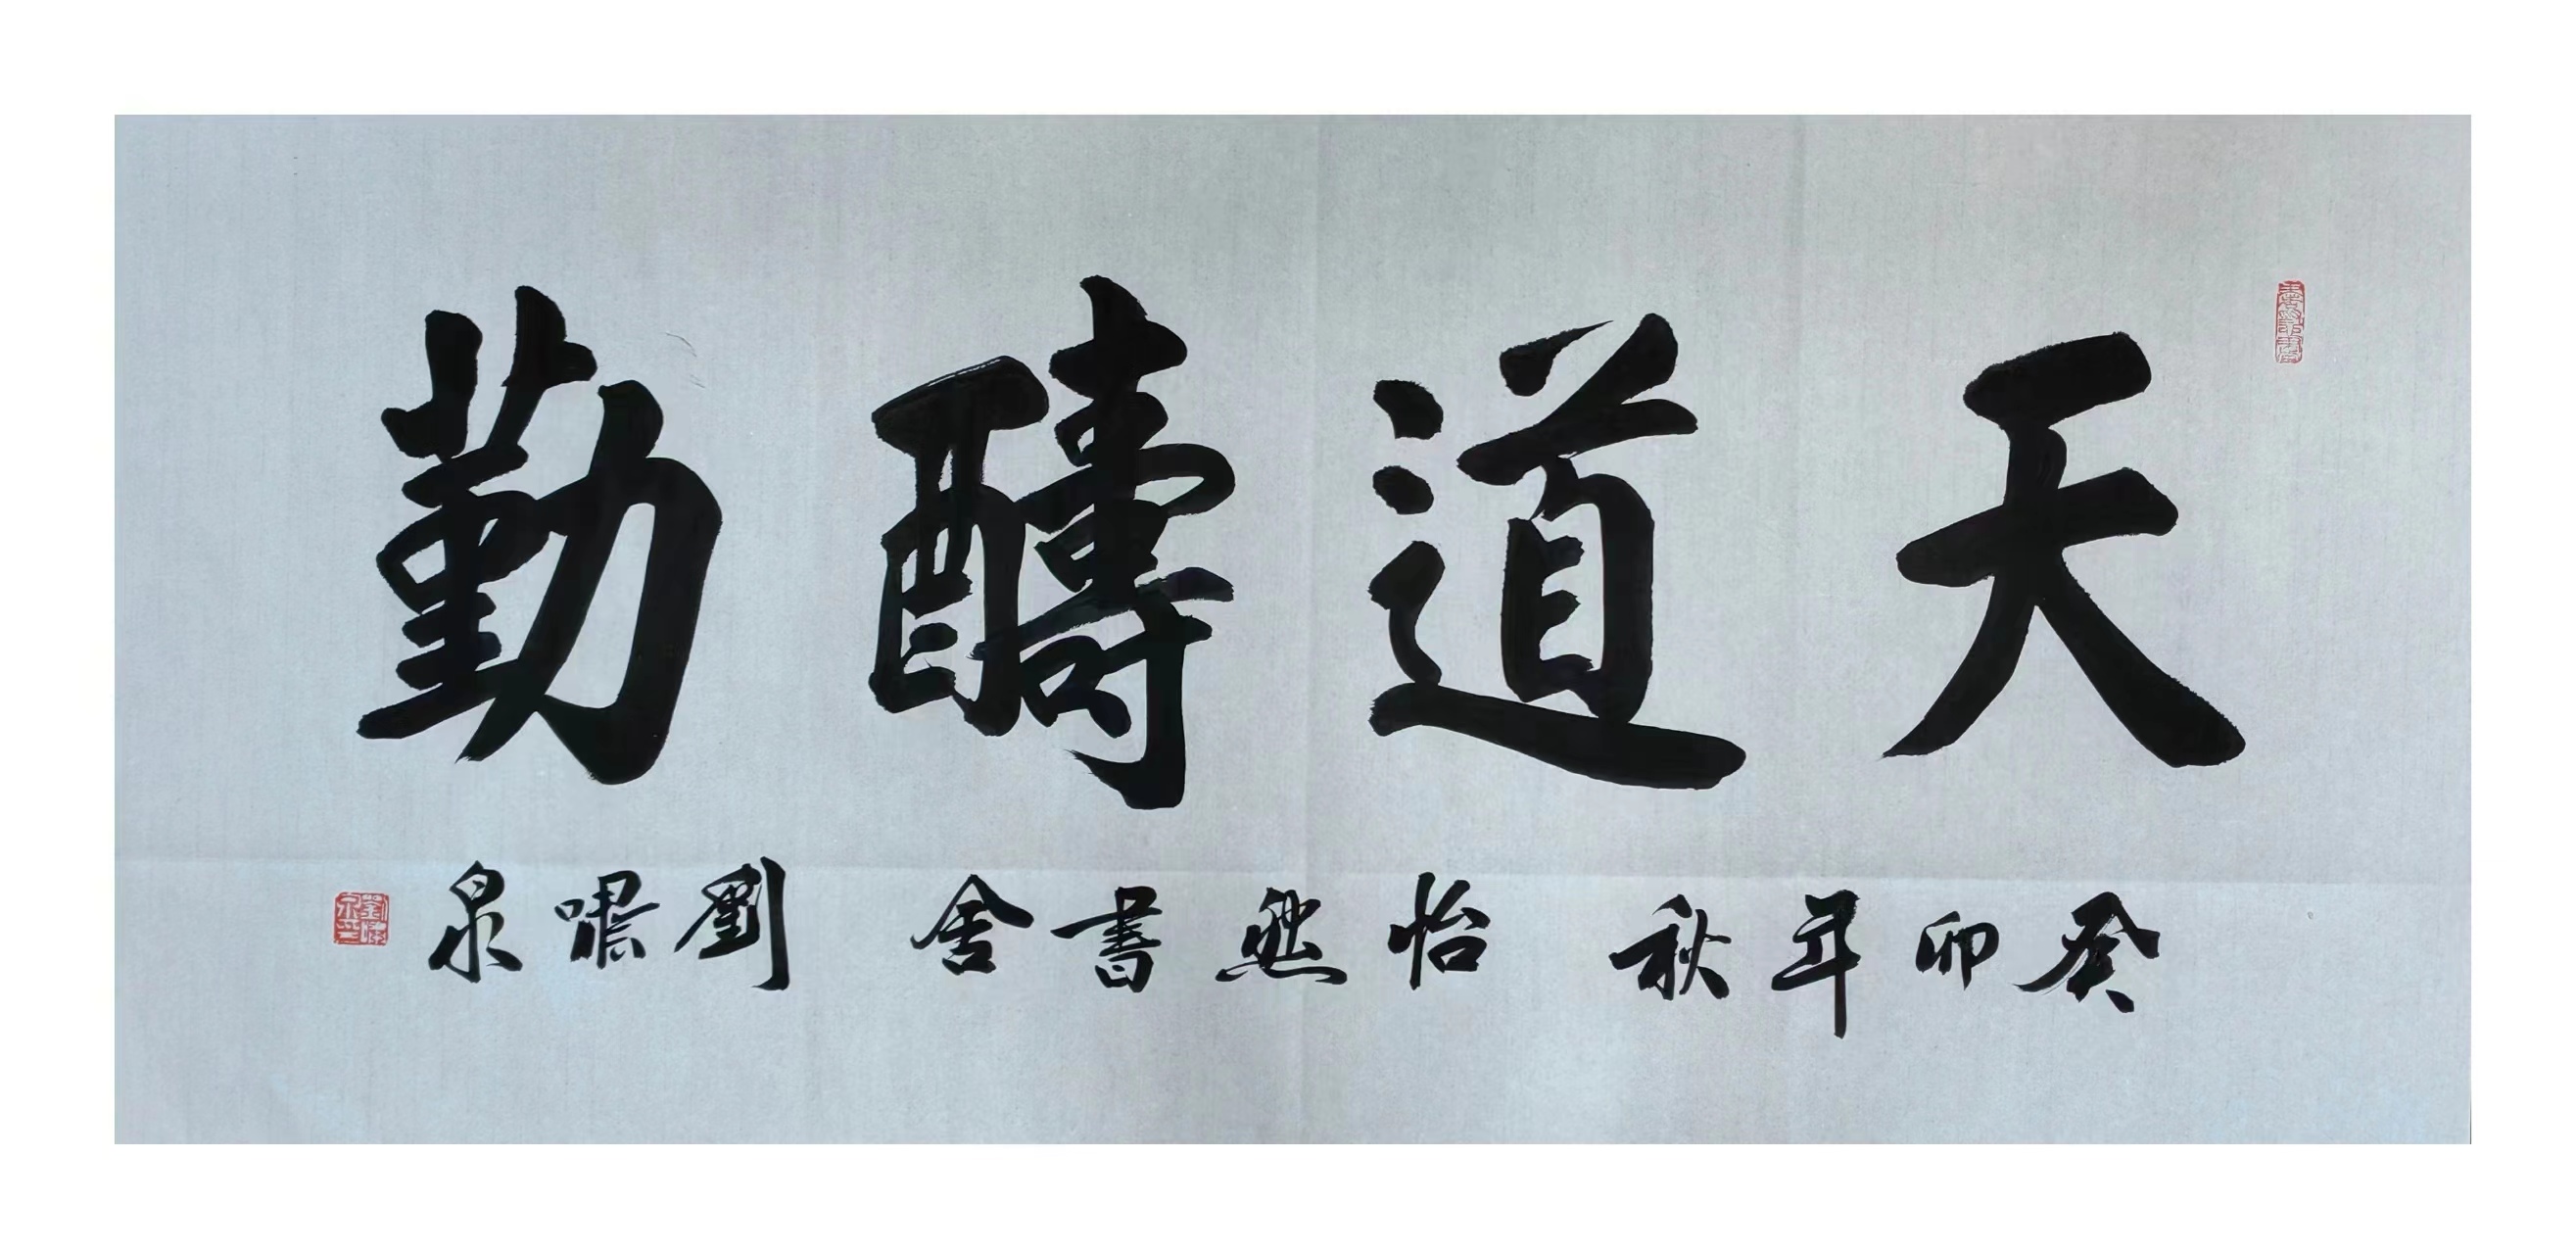 天道酬勤
癸卯年秋 怡然書舍 劉嘯泉